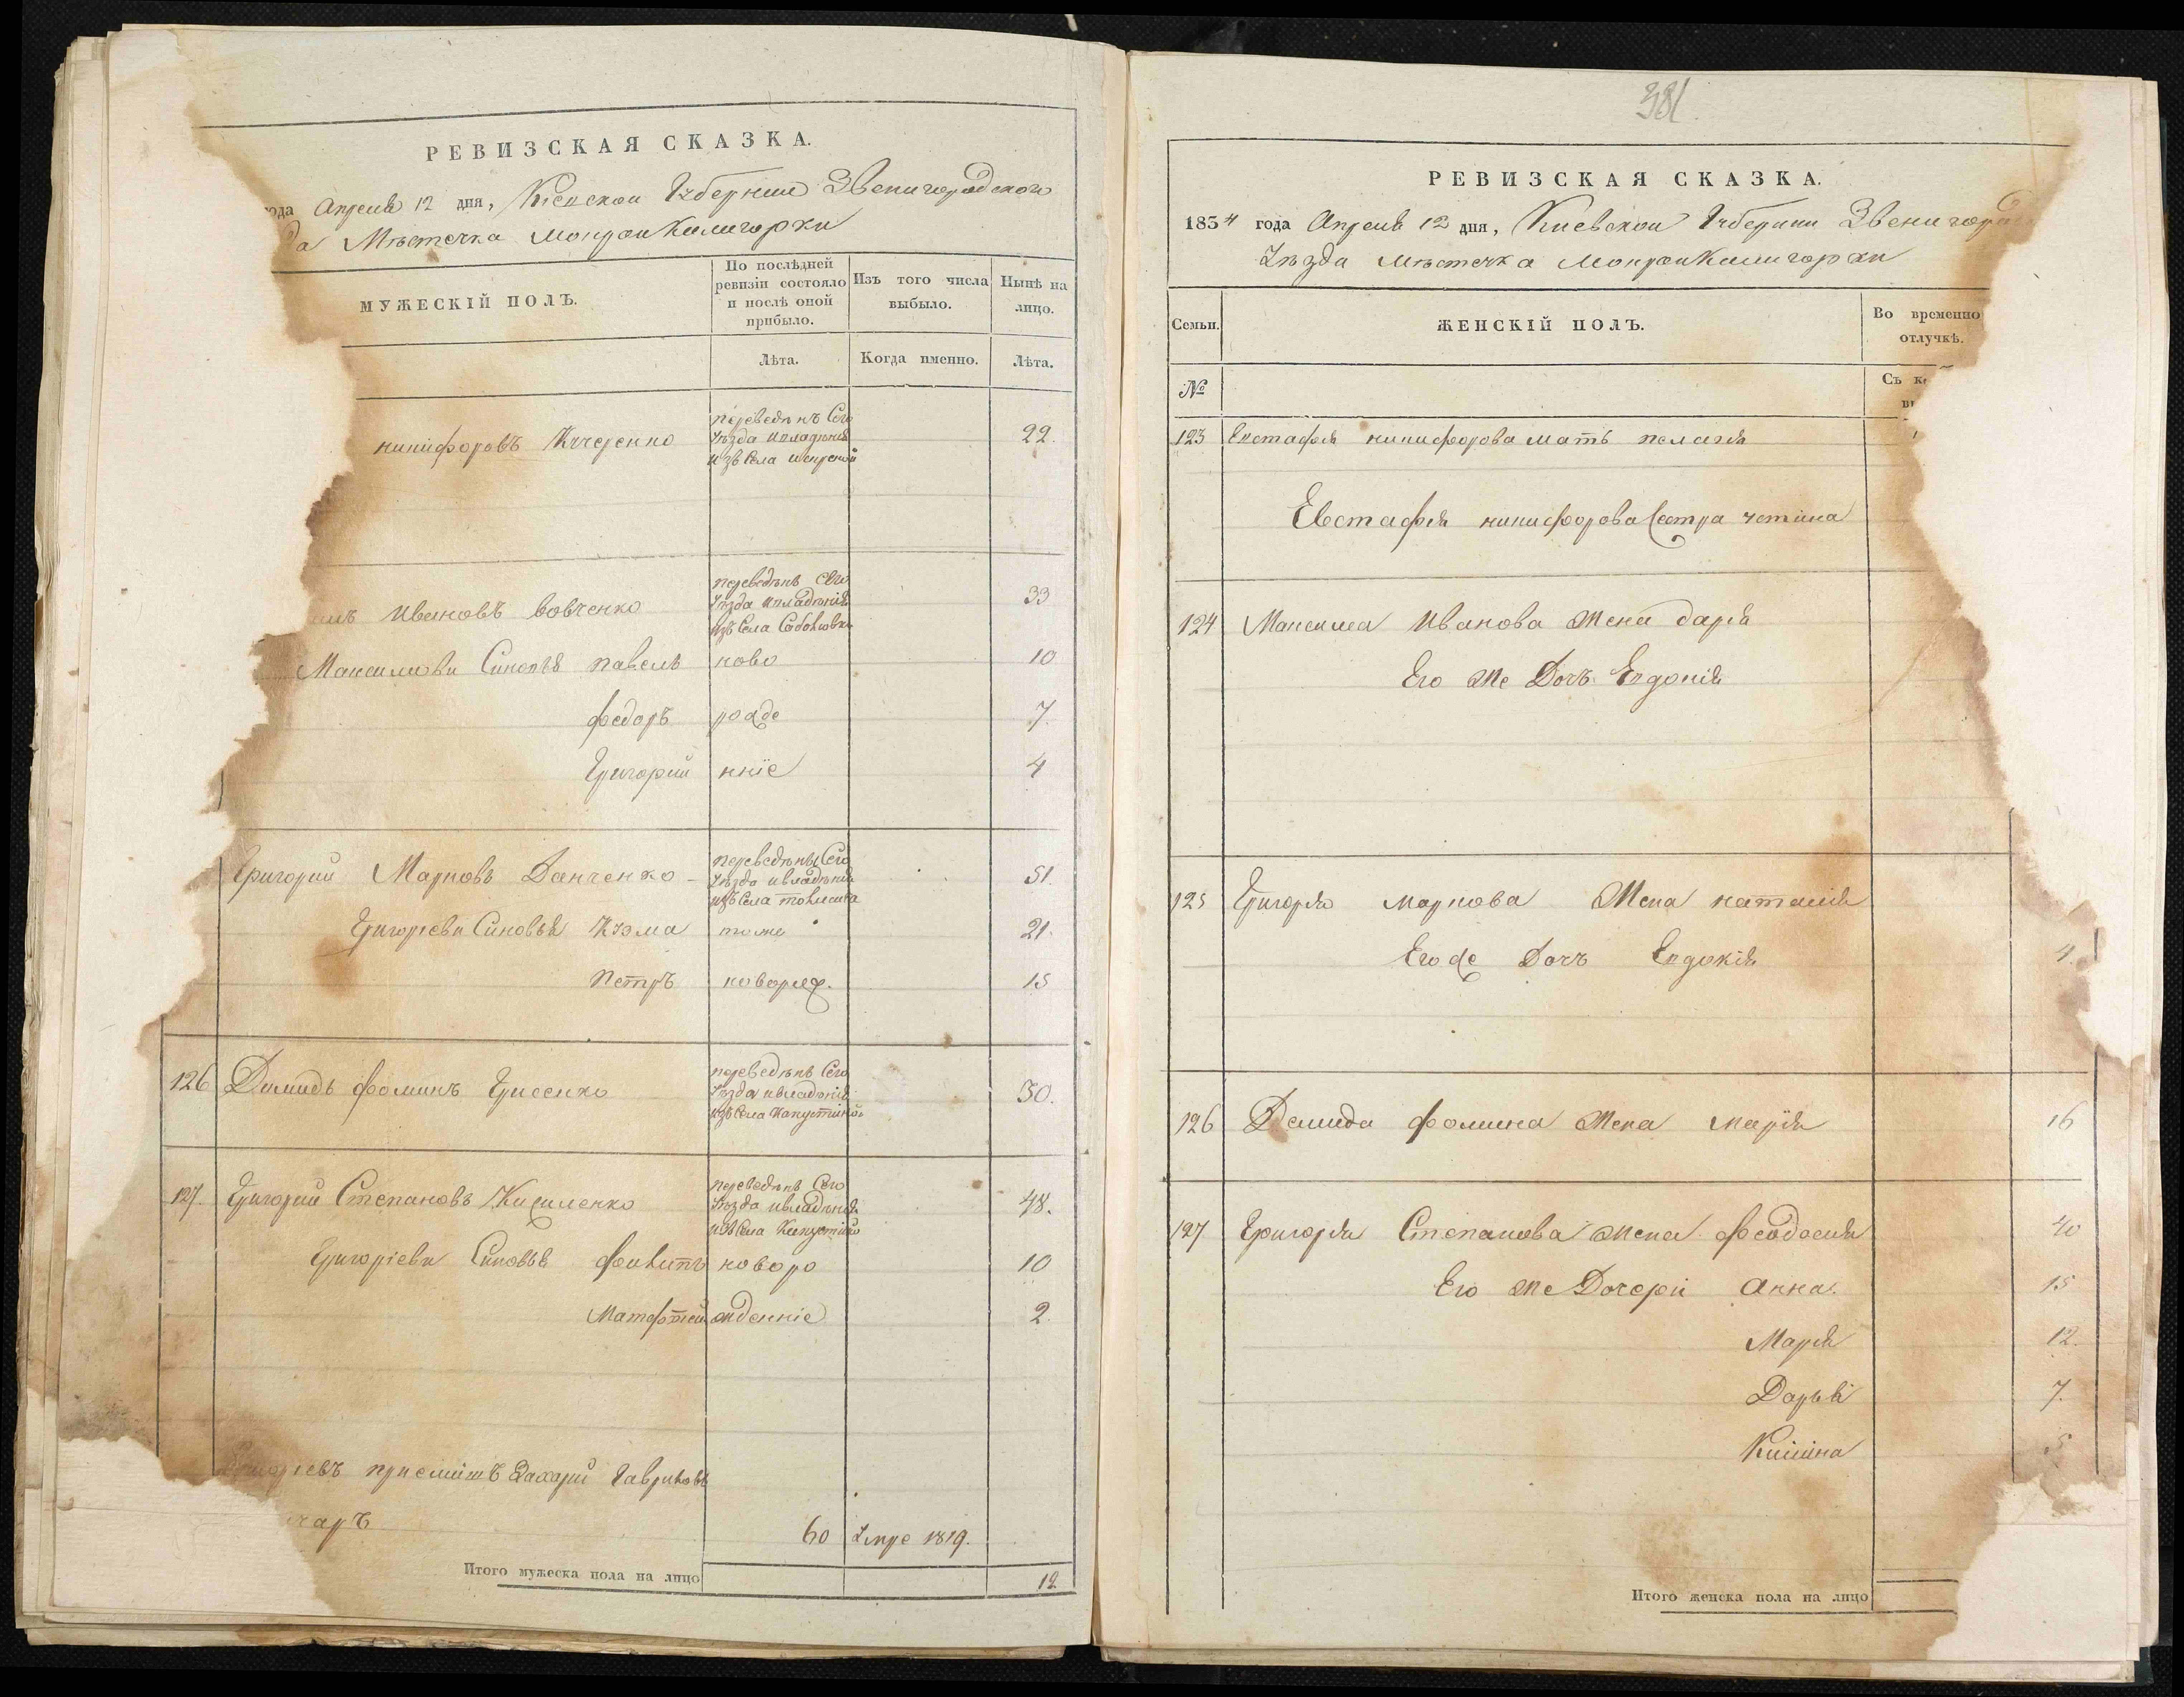 РЕВИЗСКАЯ СКАЗКА.
года Апреля 12 дня, Кіевской Губерніи Звенигородского
да Мѣстечка Мокрой Калигорки
МУЖЕСКІЙ ПОЛЪ.
По послѣдней ревизіи состояло и послѣ оной прибыло.
Изъ того числа выбыло.
Нынѣ на лицо.
Лѣта.
Когда именно.
Лѣта.
никифоровъ Кучеренко
переведѣнъ Сего
Уѣзда ивладѣнія
изъ Села
22.
Ивановъ вовченко
переведѣнъ Сего
Уѣзда ивладѣнія
изъ Села
33
Максимови Синовъя павелъ ново 10
федоръ рожде 7.
Григорий нніе 4
Григорий Марковъ Данченко
переведѣны Сего
Уѣзда ивладѣнія
изъ Села толмача
51.
Григоріеви Синовья Кузма тоже 21.
Петръ коворож. 15
126 Димидъ фоминъ Грисенко
переведѣнъ Сего
Уѣзда ивладѣнія
изъ Села Капустино
30.
127. Григорий Степановъ Кисиленко
переведѣнъ Сего
Уѣзда ивладѣнія
изъ Села Капустино
48.
Григоріеви Синовья филипъ новоро 10
Матфтей жденніе 2.
приемишъ Захарий Гавриловъ
чаръ 60 Умре 1819.
Итого мужеска пола на лицо 12
381.
РЕВИЗСКАЯ СКАЗКА.
1854 года Апреля 12 дня, Киевской Губернии Звенигород
Уѣзда Мѣстечка Мокрой Калигорки
Семьи.
ЖЕНСКІЙ ПОЛЪ.
Во временно
отлучкѣ.
№
Съ к
123 Евстафія никифорова мать пелагія
Евстафія никифорова Сестра устина
124 Максима Иванова Жена дарія
Его же Дочъ Евдокія
125 Григорія маркова Жена наталія
Егоже Дочъ Евдокія 4.
126 Демида фомина Жена марія 16
127 Григорія Степанова жена феодосия 40
Его же Дочери Анна. 15
Марія 12.
Дарья 7.
Килина 5
Итого женска пола на лицо